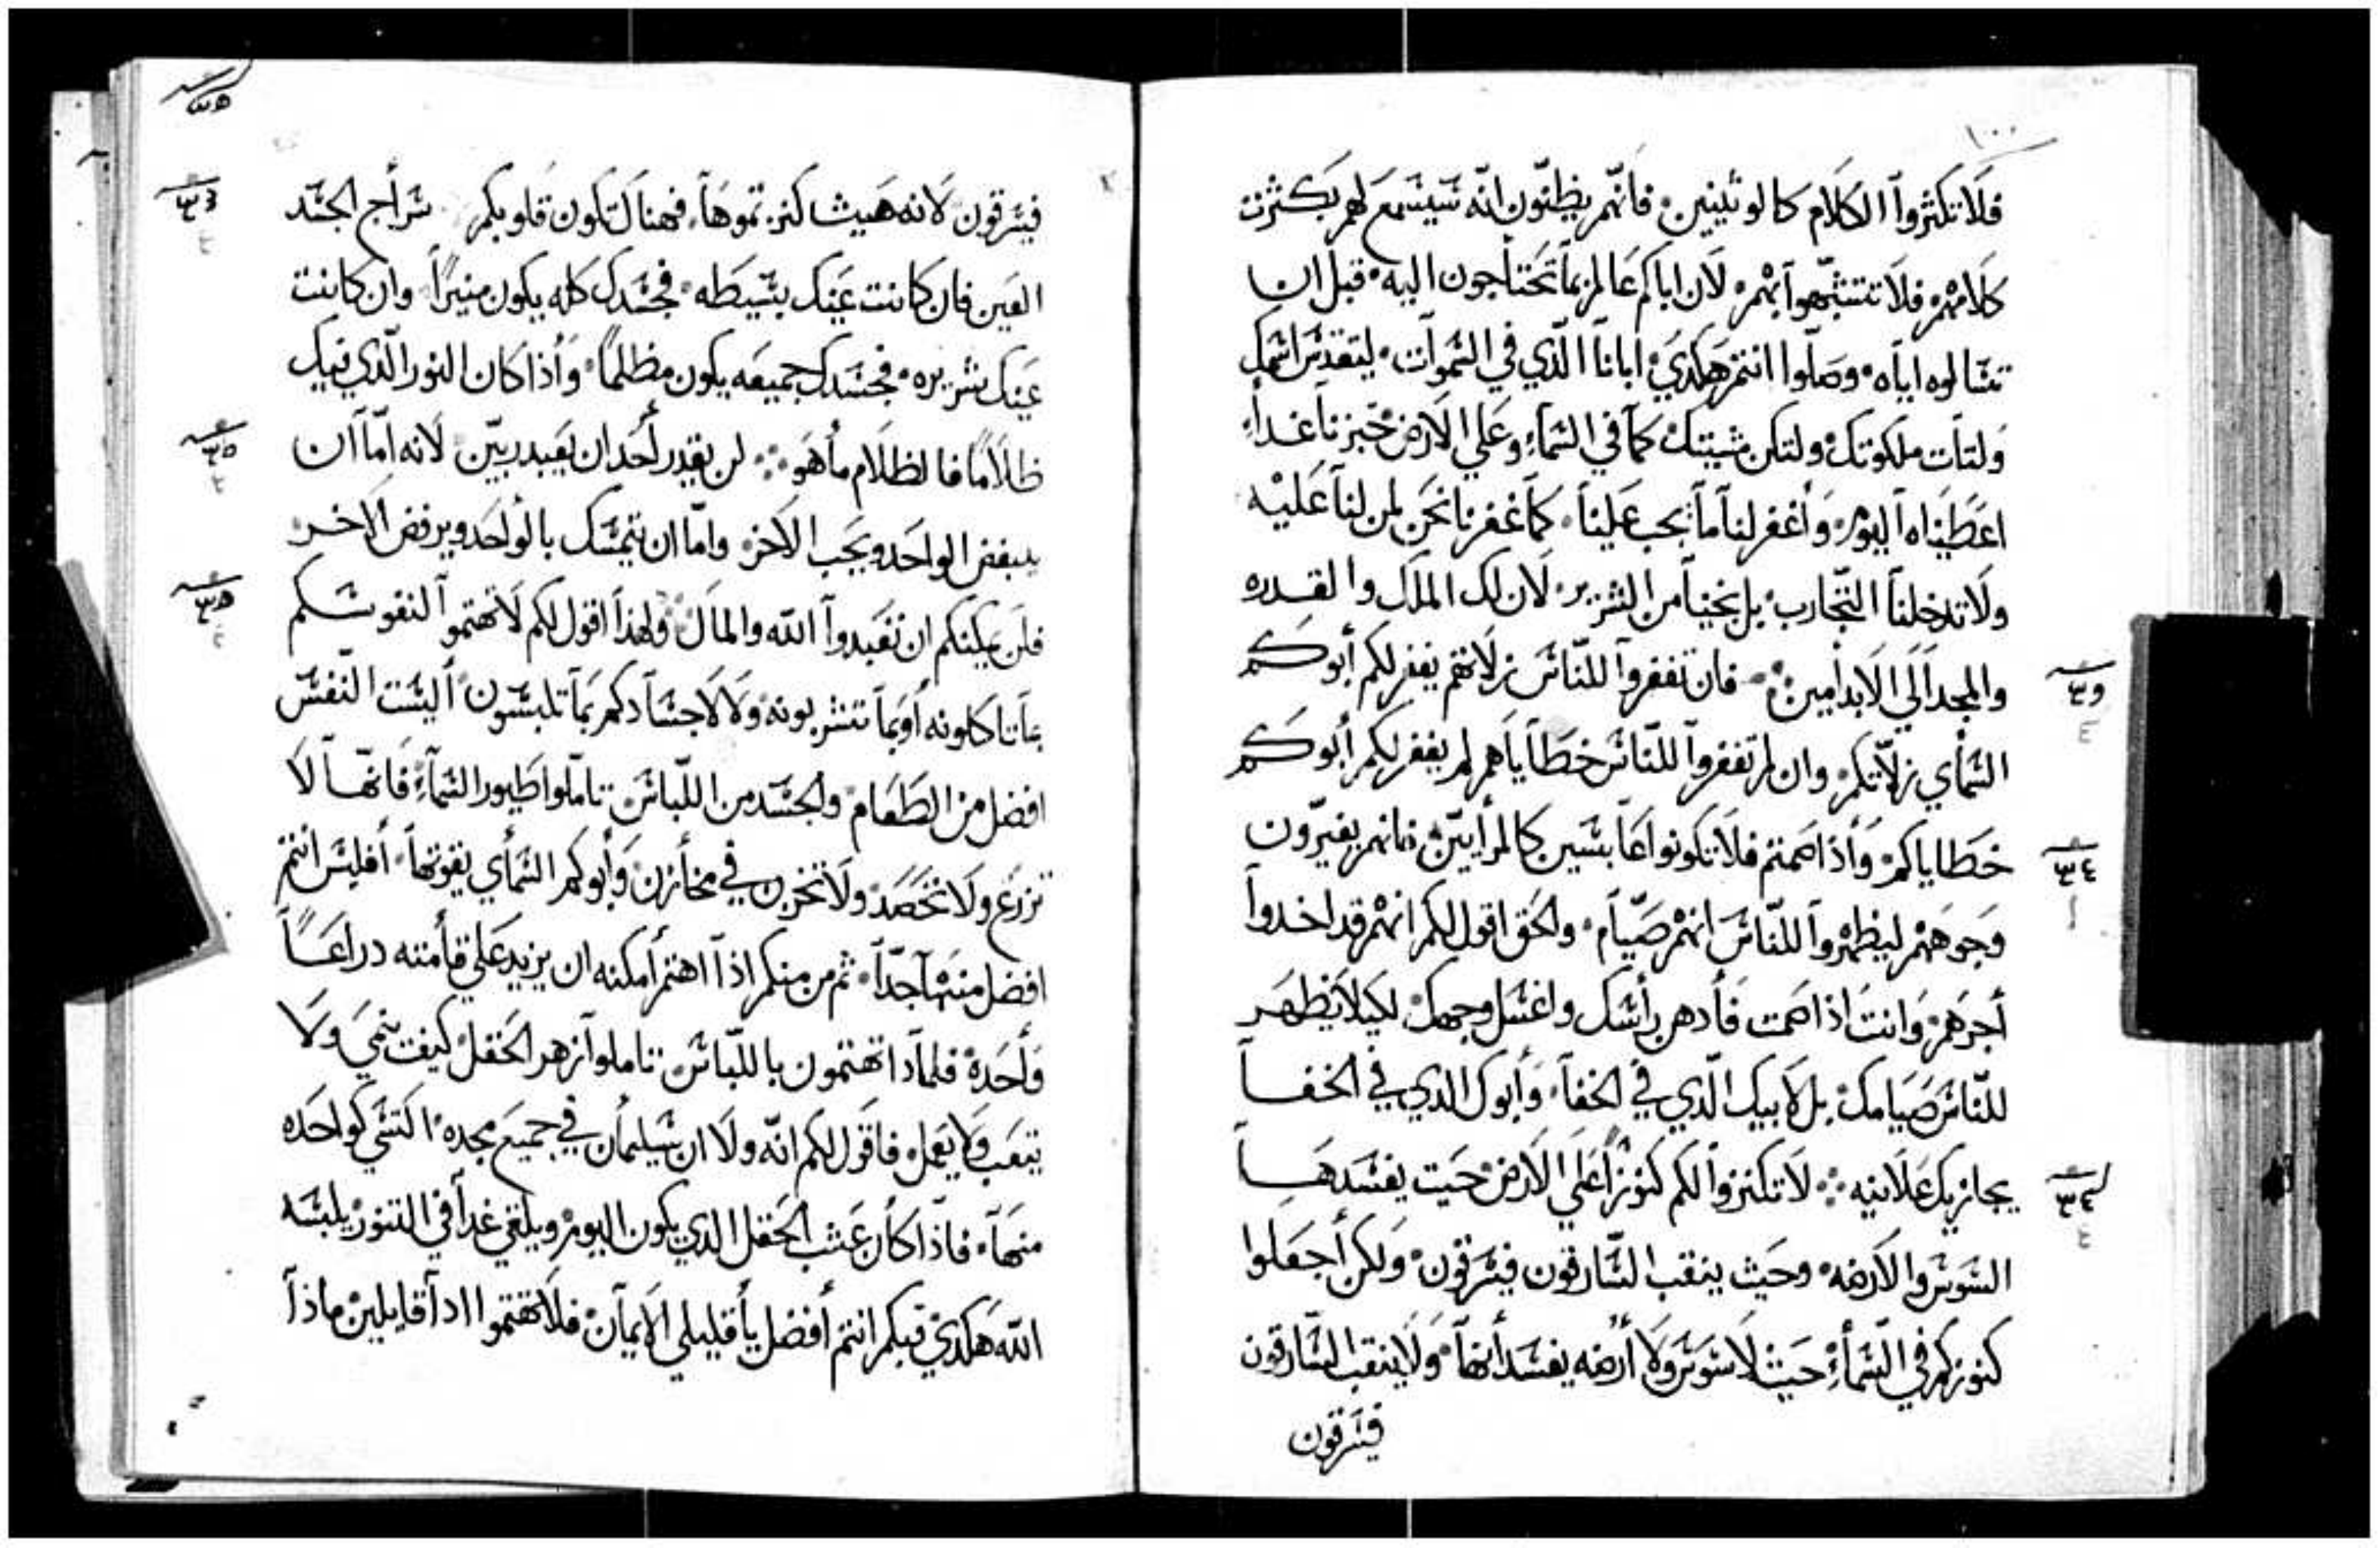 ١٠٠
فلا تكثروا الكلام كالوثنيين فانهم يظنون انه سيسمع لهم بكثرت
كلامهم فلا تتشبهوا بهم لان اباكم عالم بما تحتاجون اليه قبل ان
تسالوه اياه وصلوا انتم هكدي ابانا الذي في السموات ليتقدس اسمك
ولتات ملكوتك ولتكن مشيتك كما في السماء وعلي الارض خبزنا غداء
اعطيناه اليوم واغفر لنا ما يجب علينا كما غفرنا نحن لمن لنا عليه
ولا تدخلنا التجارب بل نجينا من الشرير لان لك الملك والقدره
والمجد الي الابد امين فان تغفروا للناس زلاتهم يغفر لكم أبوكم
السماي زلاتكم وان لم تغفروا للناس خطاياهم لم يغفر لكم أبوكم
خطاياكم واذا صمتم فلا تكونوا عابسين كالمرايين فانهم يغيرون
وجوههم ليظهروا للناس انهم صيام والحق اقول لكم انهم قد اخدوا
أجرهم وانت اذا صمت فادهن رأسك واغسل وجهك لكيلا يظهر
للناس صيامك بل لابيك الذي في الخفا وأبوك الذي في الخفا
يجازيك علانيه لا تكنزوا لكم كنوزا علي الارض حيت يفسدها
السوس والارضه وحيث ينقب السارقون فيسرقون ولكن أجعلوا
كنوزكم في السماء حيث لا سوس ولا أرضه يفسدانها ولا ينقب السارقون
فيسرقون
فيسرقون لانه هيث كنزتموها فهناك تكون قلوبكم سراج الجسد
العين فان كانت عينك بسيطه فجسدك كله يكون منيرا وان كانت
عينك شريره فجسدك جميعه يكون مظلما واذا كان النور الذي فيك
ظلاما فالظلام ما هو لن يقدر أحد ان يعبد ربين لانه اما ان
يبغض الواحد ويحب الاخر واما ان يتمسك بالواحد ويرفض الاخر
فلن يمكنكم ان تعبدوا الله والمال ولهذا اقول لكم لا تهتموا لنفوسكم
بما تاكلونه أو بما تشربونه ولا لاجسادكم بما تلبسون أليست النفس
افضل من الطعام والجسد من اللباس تاملوا طيور السماء فانها لا
تزرع ولا تحصد ولا تخزن في مخازن وأبوكم السماي يقوتها أفليس انتم
افضل منها جدا ثم من منكم اذا اهتم أمكنه ان يزيد علي قامته دراعا
واحدة فلمادا تهتمون باللباس تاملوا زهر الحقل كيف ينمي ولا
يتعب ولا يعمل فاقول لكم انه ولا ان سليمان في جميع مجده اكتسي كواحده
منها فاذا كان عشب الحقل الذي يكون اليوم ويلقي غدا في التنور يلبسه
الله هكدي فبكم انتم أفضل يا قليلي الايمان فلا تهتموا اذا قايلين ماذا